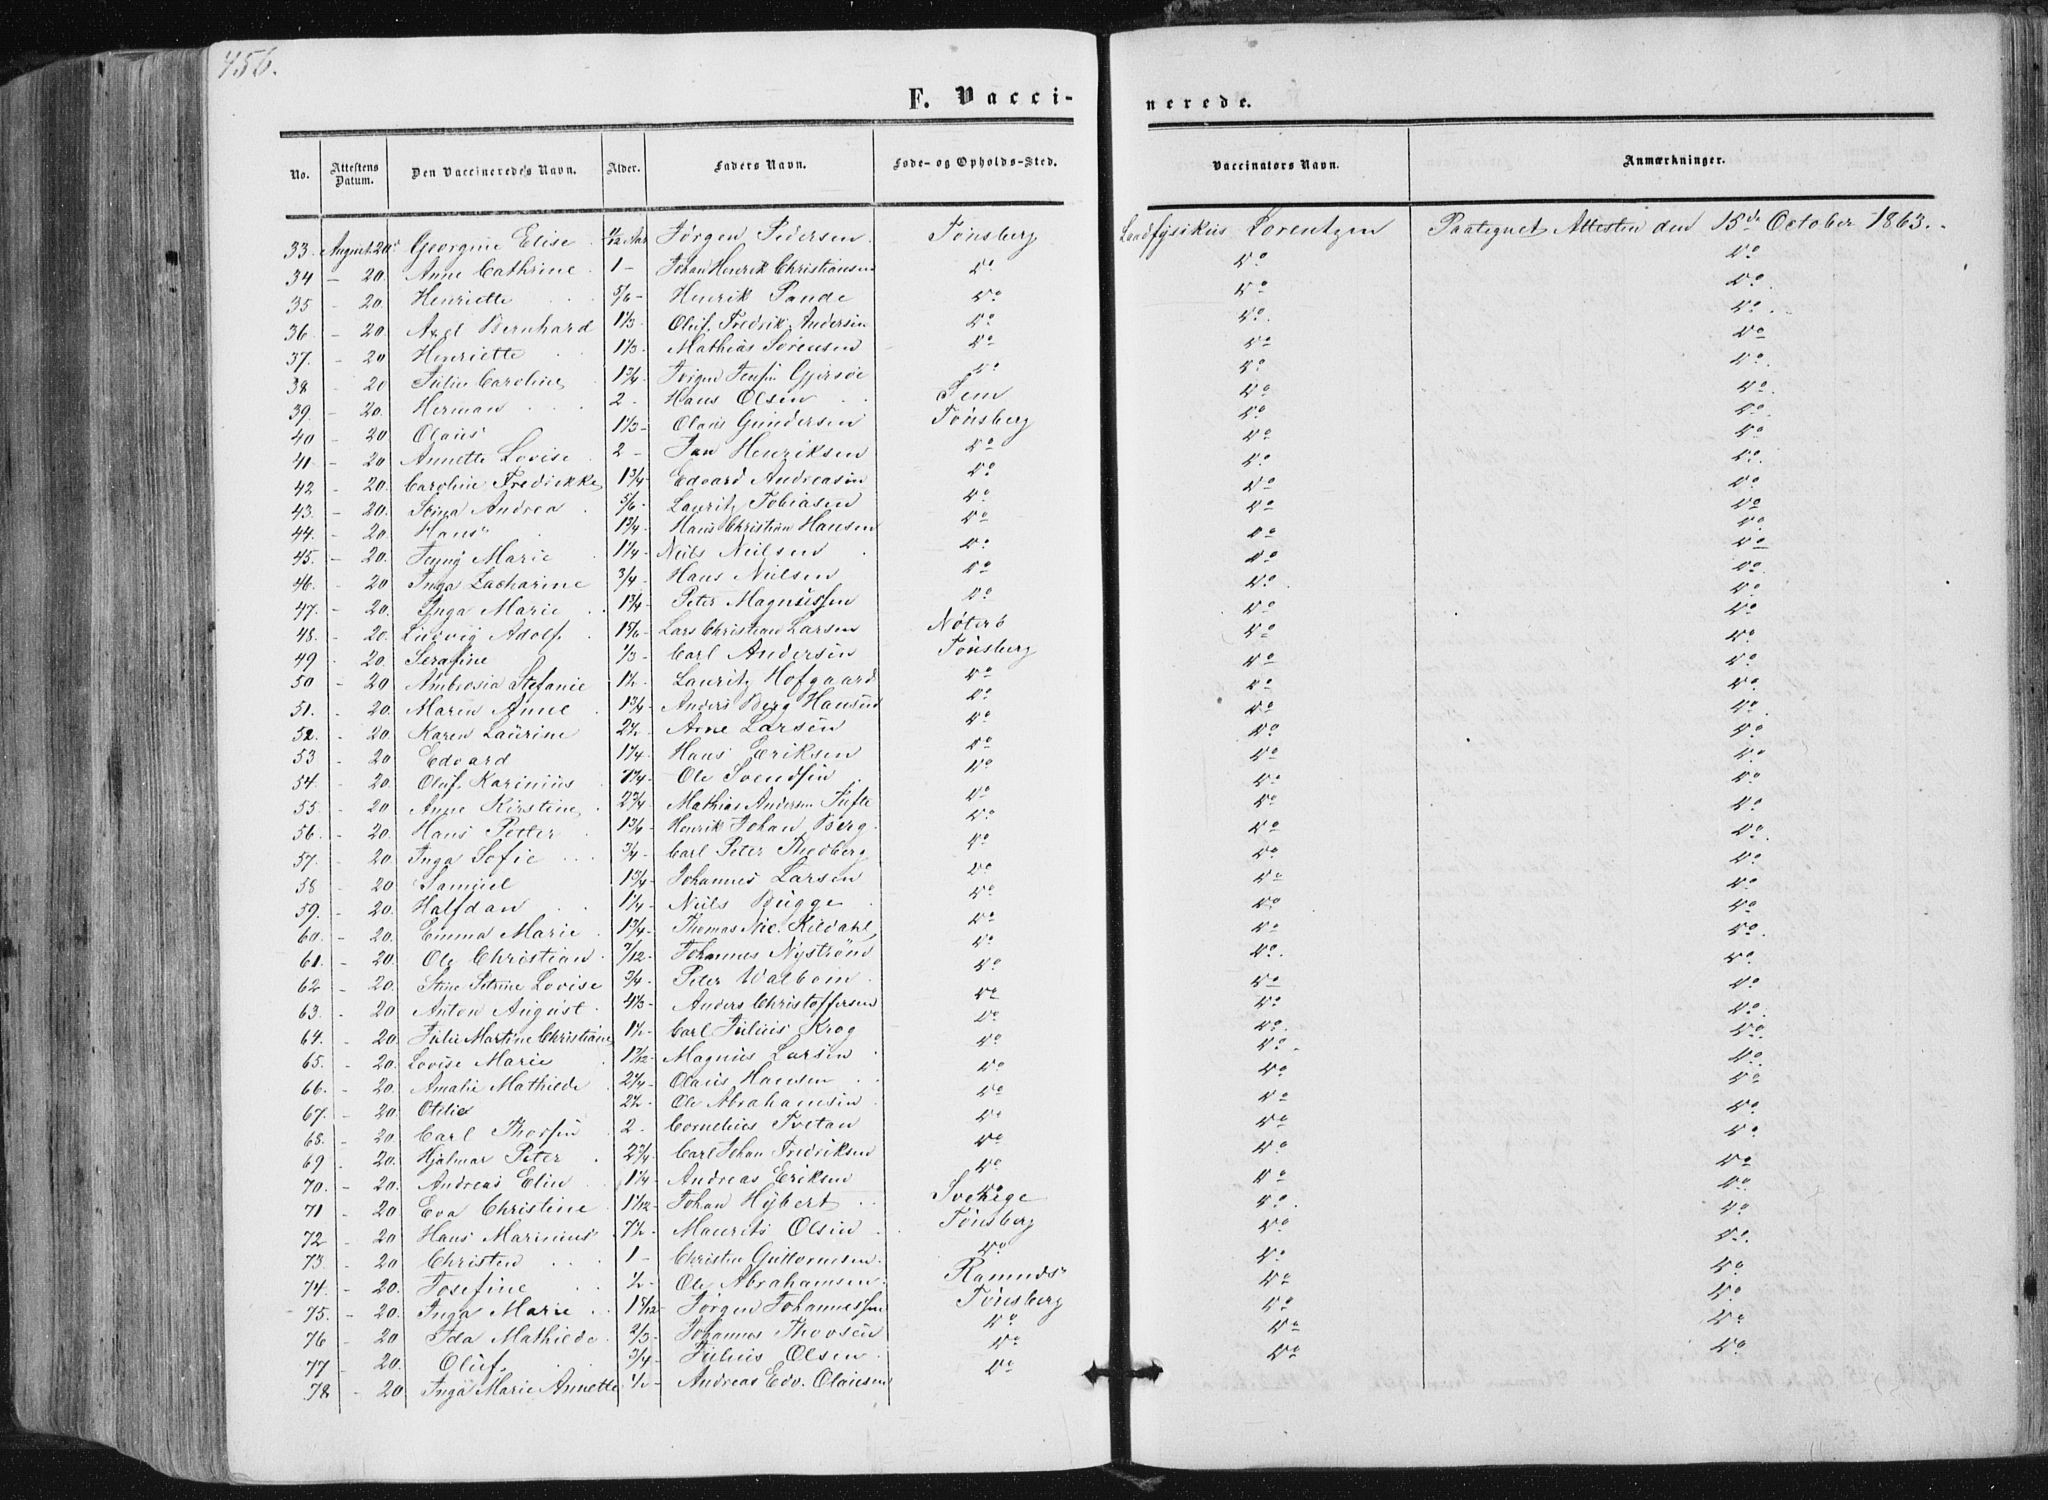 456.
F. Vacci- nerede.
No. Attestens Datum. Den Vaccineredes Navn. Alder. Faders Navn. Føde- og Opholds-Sted. Vaccinators Navn. Anmærkninger.
33. August 20. Georgine Elise Aar Jørgen Pedersen Tønsberg Landfysikus Lorentzen Paategnet Attesten den 15de October 1863.
34 - 20. Anne Cathrine 1 - Johan Henrik Christiansen Do Do Do
35 - 20 Henriette 5/6 - Henrik Do Do Do
36. - 20 Axel Bernhard 1 1/3 Oluf Fredrik Andersen Do Do Do
37. - 20 Henriette 1 1/3 - Mathias Sørensen Do Do Do
38 - 20 Julie Caroline 1 3/4 - Jørgen Jensen Do Do Do
39. - 20. Herman 2 - Hans Olsen Sem Do Do
40 - 20 Olaus 1 1/3 - Olaus Gundersen Tønsberg Do Do
41 - 20 Annette Lovise 2 - Jan Henriksen Do Do Do
42 - 20. Caroline Fredrikke 1 3/4 - Edvard Andreasen Do Do Do
43. - 20. Andrea 5/6 - Lauritz Tobiasen Do Do Do
44. - 20. Hans 1 3/4 - Hans Christian Hansen Do Do Do
45. - 20. Jenny Marie 1 1/4 - Niels Nielsen Do Do Do
46. - 20 Inga Zacharine 3/4 - Hans Nielsen Do Do Do
47. - 20. Inga Marie 1 3/4 - Peter Magnussen Do Do Do
48. - 20. Ludvig Adolf 1 5/6 - Lars Christian Larsen Nøterö Do Do
49 - 20. Serafine 1/3 - Carl Andersen Tønsberg Do Do
50 - 20 Ambrosia Stefanie 1 1/2 - Lauritz Hofgaard Do Do Do
51. - 20. Maren Anne 1 3/4 - Anders Berg Hansen Do Do Do
52. - 20. Karen Laurine 2 1/2 - Arne Larsen Do Do Do
53 - 20 Edvard 1 1/4 - Hans Eriksen Do Do Do
54. - 20. Oluf Karinius Ole Svendsen Do Do Do
55. - 20 Anne Kirstine 2 3/4 - Mathias Andersen Tufte Do Do Do
56. - 20. Hans Petter Henrik Johan Berg Do Do Do
57. - 20. Inga Sofie 3/4 - Carl Peter Thedberg Do Do Do
58 - 20 Samuel 1 3/4 - Johannes Larsen Do Do Do
59. - 20. Halfdan 1 1/4 - Niels Bugge Do Do Do
60. - 20. Emma Marie 1 3/4 - Thomas Nic. Kildahl Do Do Do
61. - 20. Ole Christian 7/12 - Johannes Nystrøm Do Do Do
62 - 20. Stine Petrine Lovise 3/4 - Peter Walbom Do Do Do
63. - 20 Anton August 4 1/3 - Anders Christoffersen Do Do Do
64. - 20. Julie Martine Christiane 1 1/2 - Carl Julius Krog Do Do Do
65. - 20. Lovise Marie Magnus Larsen Do Do Do
66. - 20 Amalie Mathilde 2 1/4 - Olaus Hansen Do Do Do
67. - 20 Otilie 2 1/2 - Ole Abrahamsen Do Do Do
68. - 20. Carl Thorsen 2 - Cornelius Tvetan Do Do Do
69 - 20. Hjalmar Peter 2 3/4 - Carl Johan Fredriksen Do Do Do
70. - 20. Andreas Elin 1 1/4 - Andreas Eriksen Do Do Do
71 - 20 Eva Christine 1 1/12 - Johan Hybert Sverige Do Do
72 - 20 Hans Marinius 7 1/2 - Maurits Olsen Tønsberg Do Do
73. - 20 Christen 1 - Christen Guttormsen Do Do Do
74. - 20. Josefine 1/2 - Ole Abrahamsen Ramnæs Do Do
75. - 20. Inga Marie 1 5/12 - Jørgen Johannessen Tønsberg Do Do
76 - 20 Ida Mathilde 2/3 - Johannes Thovsen Do Do Do
77 - 20. Oluf 3/4 - Julius Olsen Do Do Do
78 - 20. Inga Marie Annette 1/2 - Andreas Edv. Olausen Do